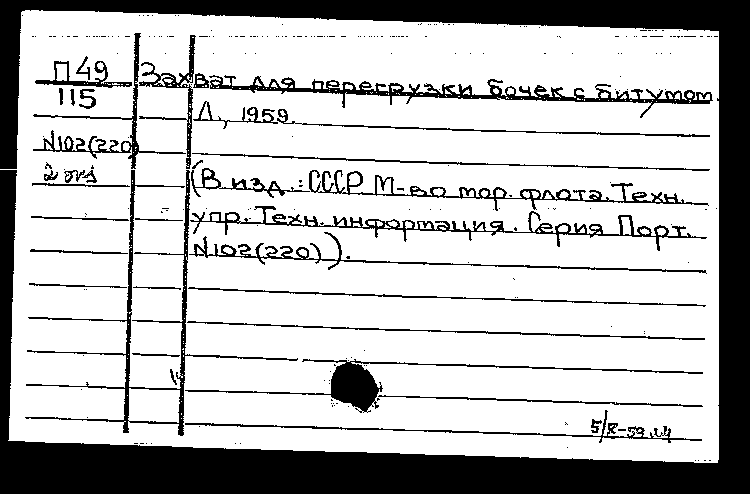 П49 Захват для перегрузки бочек с битумом.
115 Л., 1959.
N102(220)
2 экз (В изд.: СССР М-во мор. флота. Техн.
упр. Техн. информация. Серия Порт.
N102(220)).